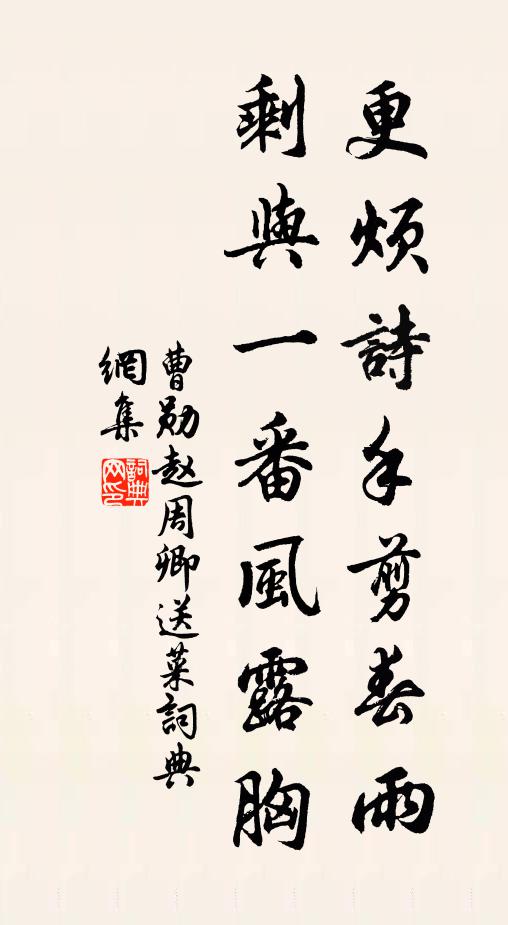 更煩詩手剪春雨
剩與一番風露胸
曹勛赵周卿送菜詞典
網集
詞典
网印